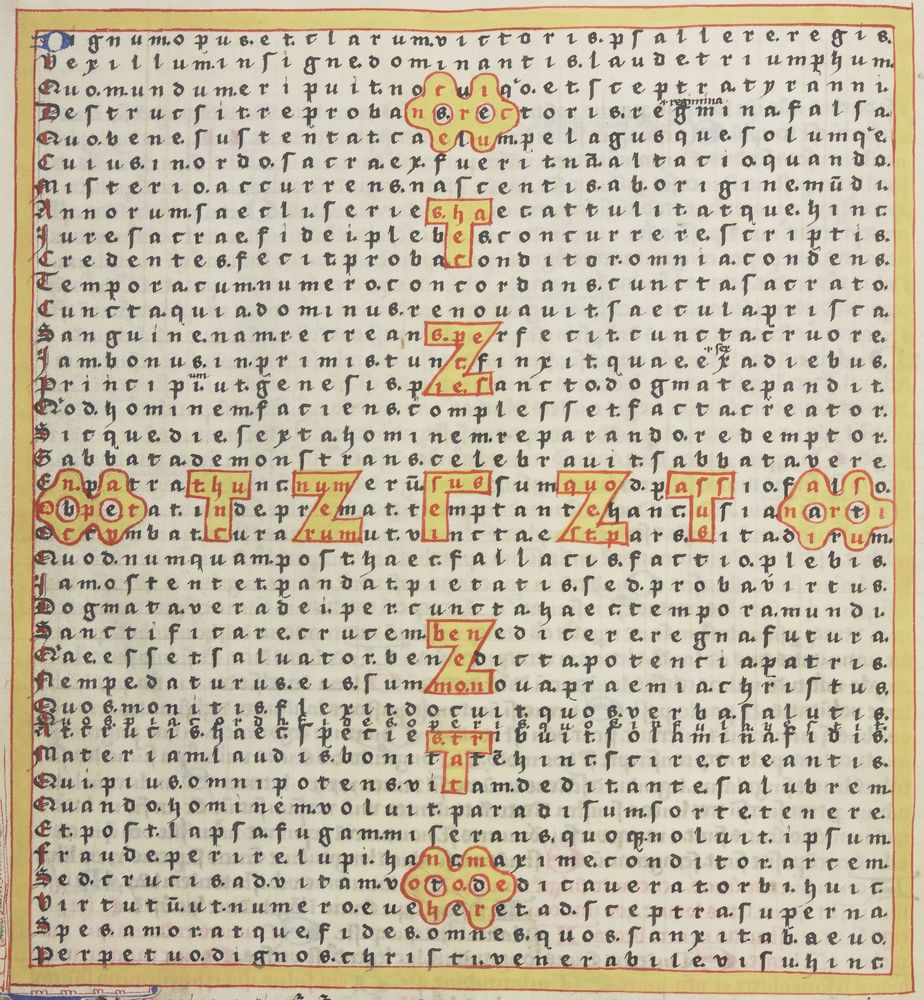 Dignum.opus.et.clarum.victoris.psallere.regis.
Vexillum insigne dominantis.laude triumphum
Quo.mundum.eripuit.nocuiqo.et.sceptra.tyranni.
Destruxit.reprobans.rectoris.regmina.falsa.
Quo.bene.sustentat.caelum.pelagusque.solumqe.
Cuius.in.ordo.sacra.ex.fuerit.nāaltatio.quando.
Misterio.accurrens.nascentis.ab.origine.mūdi.
Annorum.saecli.series.haec.attulit.atque.hinc
Iure.sacrae.fidei.plebes.concurrere.scriptis.
Credentes.fecit.proba.conditor.omnia.condens.
Tempora.cum.numero.concordans.cuncta.sacrato.
Cuncta.quia.dominus.renouauit.saecula.prisca.
Sanguine.nam.recreans.perfecit.cuncta.cruore.
Iam.bonus.in.primis.tunc.finxit.quae.ex.a.diebus
Principi.ut.genesis.pie.sancto.dogmate.pandit.
Quod.hominem.faciens.complesset.facta.creator.
Sicque.die.sexta.hominem.reparando.redemptor.
Sabbata.demonstrans.celebrauit.sabbata.vere
En.patrat.hunc.numerū.sus.sum.quod.passio.falso.
Obpetat.inde.premat.temptante.hanc.usia.narti
Occumbat.curarum.ut.vincta.est.pars.ita.dirum.
Quod.numquam.post.haec.fallacis.factio.plebis.
Iam.ostentet.pandat.pietatis.sed.proba.virtus.
Dogmata.vera.dei.per.cuncta.haec.tempora.mundi.
Sanctificare.crucem.benedicere.regna.futura.
Quae.esset.saluator.benedicta.potencia.patris.
Nempe.daturus.eis.summo.noua.praemia.christus.
Quos.monitis.flexit.docuit.quos.verba.salutis.
At.crucis.haec.species.tribuit.solamina.fidis.
Materiam.laudis.bonitatē.hinc.scire.creantis.
Qui.pius.omnipotens.vitam.dedit.ante.salubrem
Quando.hominem.voluit.paradisum.sorte.tenere.
Et.post.lapsa.fugam.miserans.quoque.noluit.ipsum
Fraude.perire.lupi.hanc.maxime.conditor.arcem
Sed.crucis.ad.vitam.voto.dedicauerat.orbi.huic
Virtutū.ut.numero.eueheret.ad.sceptra.superna.
Spes.amor.atque.fides.omnes.quos.sanxit.ab.aeuo.
Perpetuo.dignos.christi.venerabile.visu.hinc